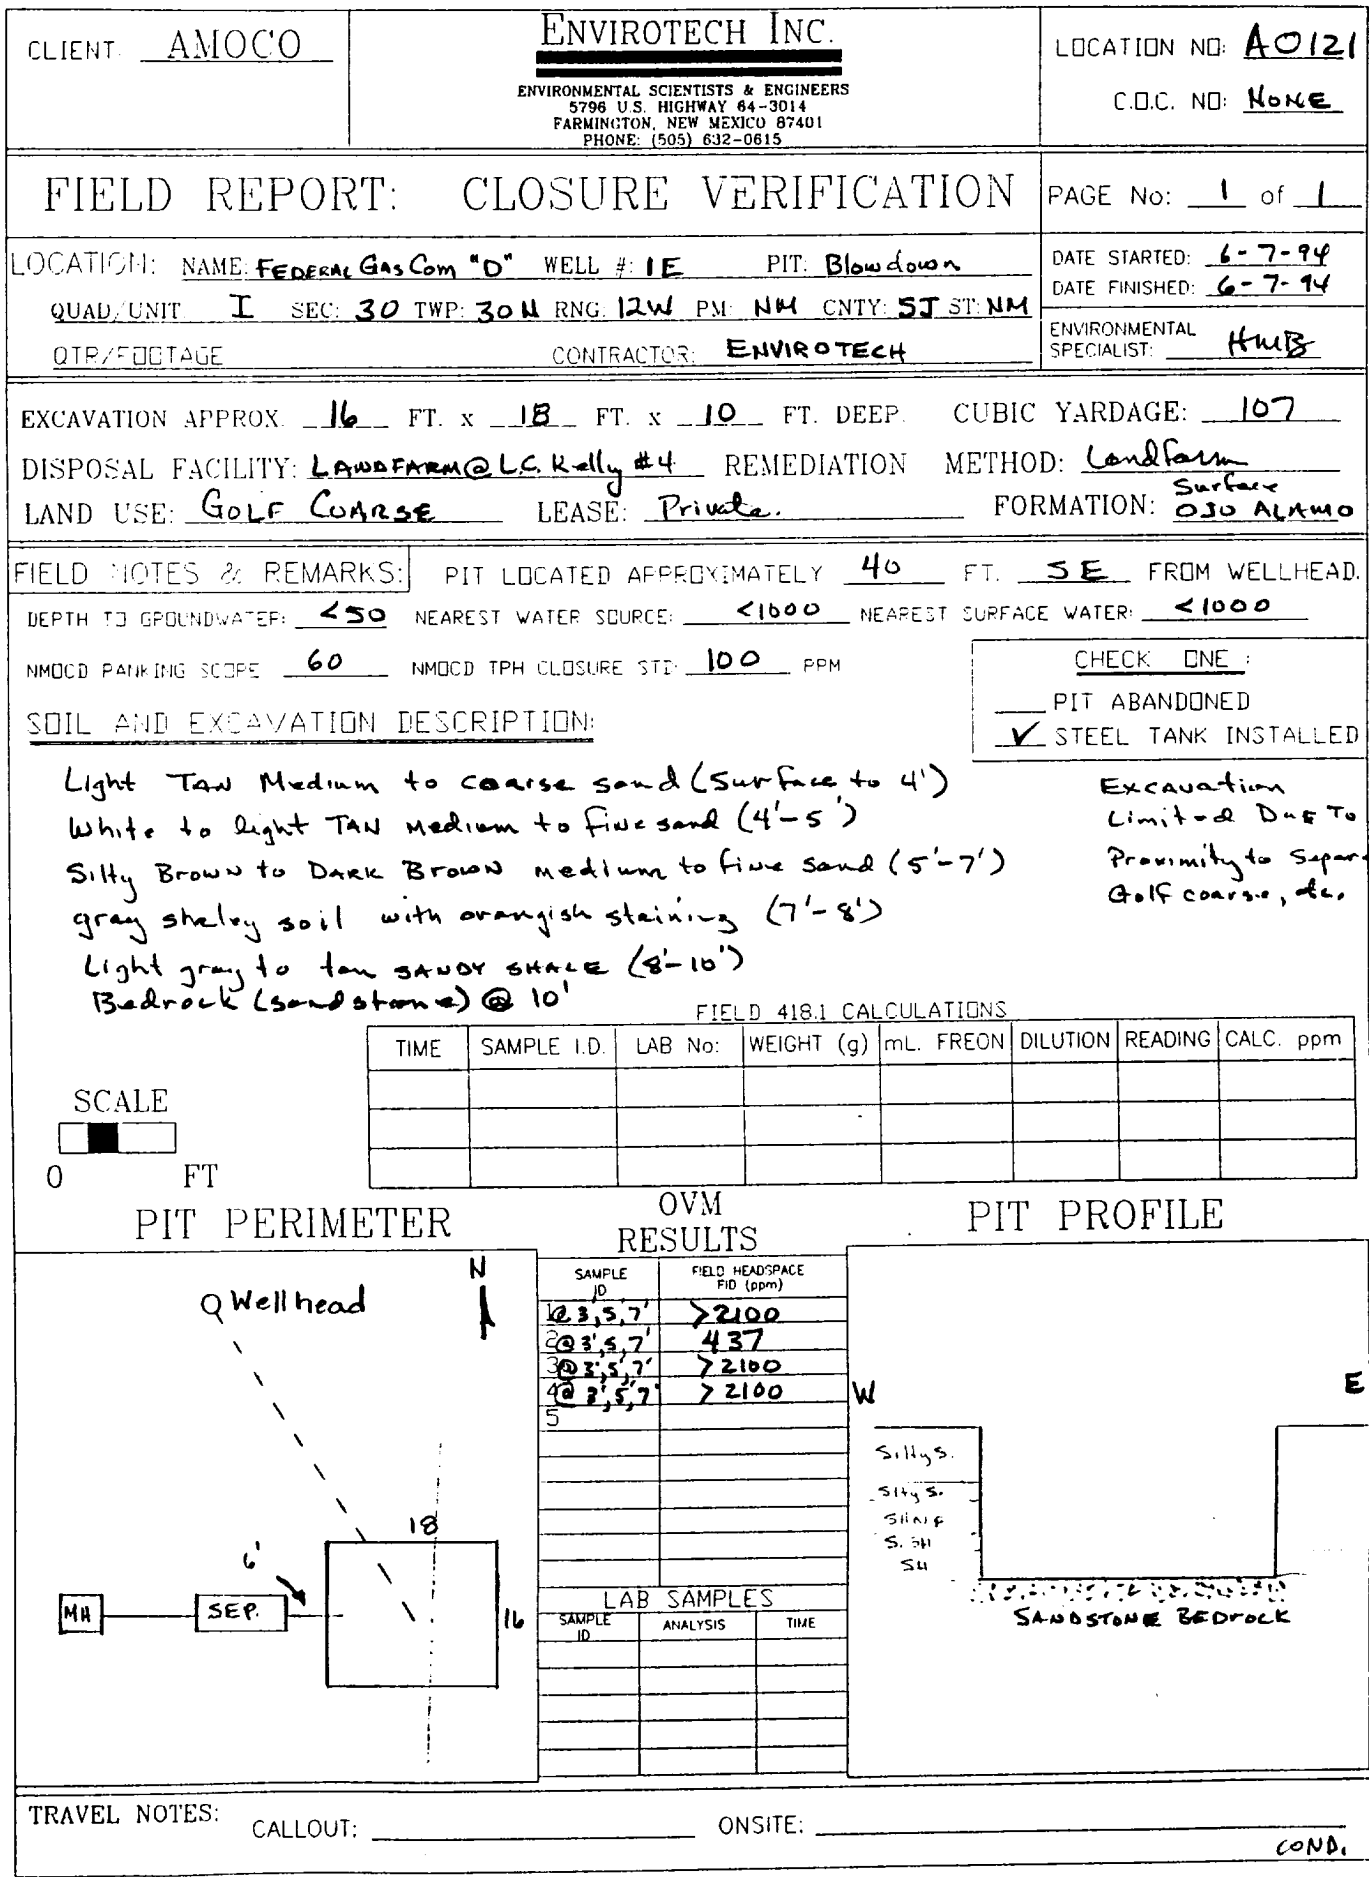 CLIENT: AMOCO
ENVIROTECH INC.
ENVIRONMENTAL SCIENTISTS & ENGINEERS
5796 U.S. HIGHWAY 64-3014
FARMINGTON, NEW MEXICO 87401
PHONE: (505) 632-0615
LOCATION NO: A0121
C.O.C. NO: NONE
FIELD REPORT: CLOSURE VERIFICATION
PAGE No: 1 of 1
LOCATION: NAME: FEDERAL GAS COM "D" WELL #: 1E PIT: Blowdown
QUAD/UNIT I SEC: 30 TWP: 30N RNG: 12W PM: NM CNTY: SJ ST: NM
QTR/FOOTAGE CONTRACTOR: ENVIROTECH
DATE STARTED: 6-7-94
DATE FINISHED: 6-7-94
ENVIRONMENTAL
SPECIALIST: HMB
EXCAVATION APPROX. 16 FT. x 18 FT. x 10 FT. DEEP. CUBIC YARDAGE: 107
DISPOSAL FACILITY: LANDFARM @ L.C. Kelly #4 REMEDIATION METHOD: Landfarm
LAND USE: GOLF COARSE LEASE: Private. FORMATION: Surface OJO ALAMO
FIELD NOTES & REMARKS: PIT LOCATED APPROXIMATELY 40 FT. SE FROM WELLHEAD.
DEPTH TO GROUNDWATER: <50 NEAREST WATER SOURCE: <1000 NEAREST SURFACE WATER: <1000
NMOCD RANKING SCORE 60 NMOCD TPH CLOSURE STD: 100 PPM
CHECK ONE :
PIT ABANDONED
✓ STEEL TANK INSTALLED
SOIL AND EXCAVATION DESCRIPTION:
Light TAN Medium to coarse sand (Surface to 4')
White to light TAN medium to fine sand (4'-5')
Silty Brown to DARK Brown medium to fine sand (5'-7')
gray shaley soil with orangish staining (7'-8')
Light gray to tan SANDY SHALE (8'-10')
Bedrock (sandstone) @ 10'
Excavation
Limited Due To
Proximity to Separ
Golf coarse, etc.
FIELD 418.1 CALCULATIONS
TIME SAMPLE I.D. LAB No: WEIGHT (g) mL. FREON DILUTION READING CALC. ppm
SCALE
0 FT
PIT PERIMETER
OVM
RESULTS
PIT PROFILE
N
Wellhead
18
6'
MH
SEP.
16
SAMPLE ID FIELD HEADSPACE FID (ppm)
1 @ 3',5',7' >2100
2 @ 3',5',7' 437
3 @ 3',5',7' >2100
4 @ 3',5',7' >2100
5
LAB SAMPLES
SAMPLE ID ANALYSIS TIME
W E
Silty S.
Silty S.
S. SH
SH
SANDSTONE BEDROCK
TRAVEL NOTES: CALLOUT: ONSITE:
COND.